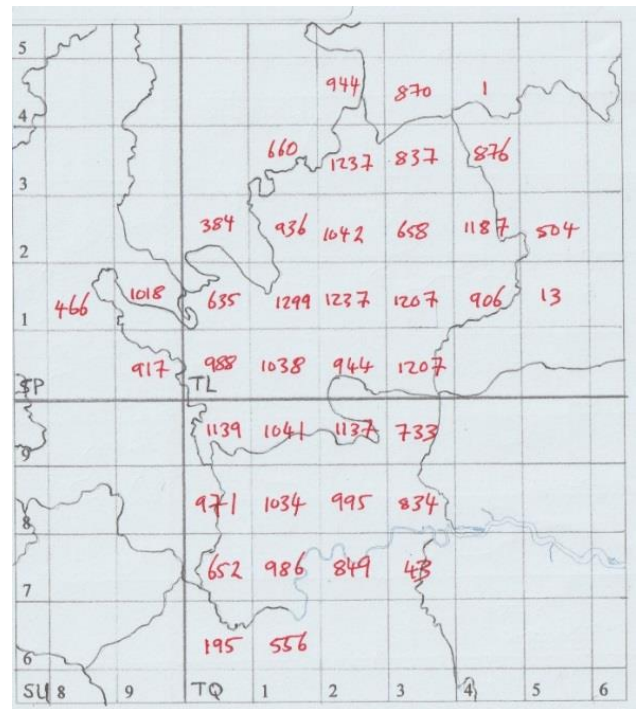 5
944 870 1
4
660 1237 837 876
3
384 936 1042 658 1187 504
2
466 1018 635 1299 1237 1207 906 13
1
917 988 1038 944 1207
SP TL
1139 1041 1137 733
9
971 1034 995 834
8
652 986 849 43
7
195 556
6
SU 8 9 TQ 1 2 3 4 5 6